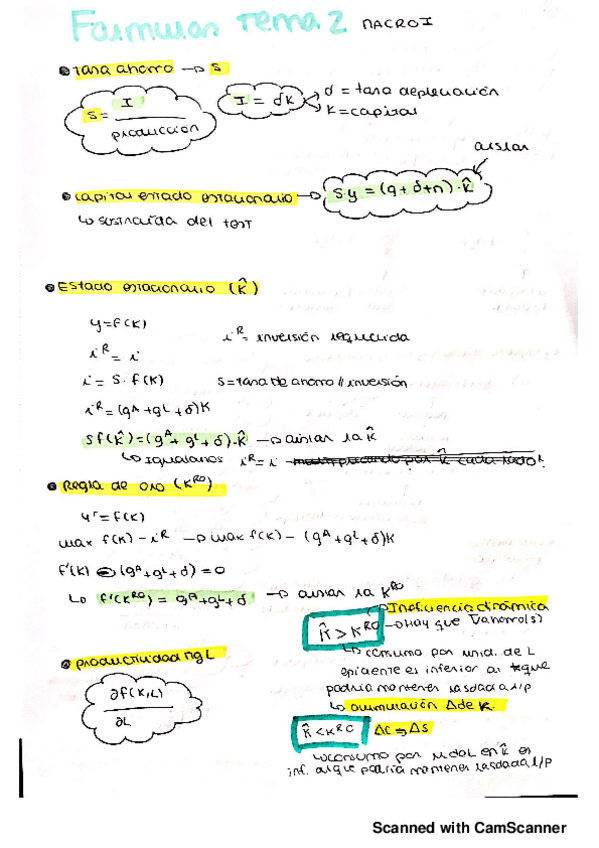 Formulas Tema 2 MACRO I
tasa ahorro → s
s = I / producción
I = δK
δ = tasa depreciación
K = capital
aislar
capital estado estacionario → s·y = (g + δ + n)·k̂
↳ sustraida del test
Estado estacionario (k̂)
y = f(k)
i^R = inversión requerida
i^R = i
i = s · f(k) s = tasa de ahorro // inversión
i^R = (g^A + g^L + δ)k
s f(k̂) = (g^A + g^L + δ)·k̂ → aislar la k̂
↳ igualamos i^R = i
Regla de oro (k^RO)
y^r = f(k)
max f(k) − i^R → max f(k) − (g^A + g^L + δ)k
f'(k) − (g^A + g^L + δ) = 0
↳ f'(k^RO) = g^A + g^L + δ → aislar la k^RO
Ineficiencia dinámica
k̂ > k^RO → Hay que ∇ahorro(s)
↳ consumo por unid. de L
eficiente es inferior al que
podría mantener l/p
↳ acumulación Δ de K.
productividad mg L
∂f(K,L) / ∂L
k̂ < k^RO Δc ⇒ Δs
↳ consumo por ud L en k̂ es
inf. al que podría mantener l/p
Scanned with CamScanner